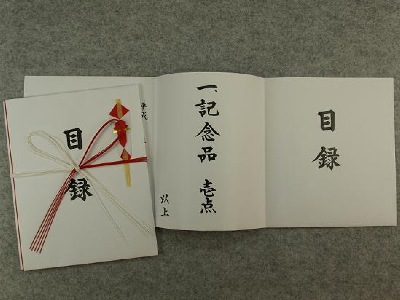 目録
目録
一、記念品 壱点
以上